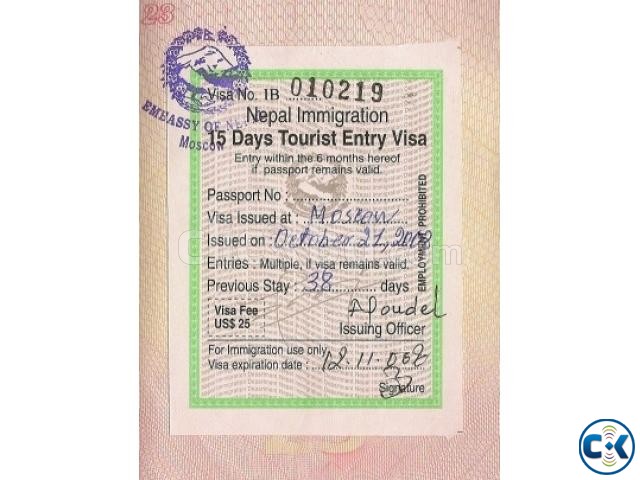 23
Visa No. 1B 010219
Nepal Immigration
EMBASSY OF NE
Moscow
15 Days Tourist Entry Visa
Entry within the 6 months hereof
if passport remains valid.
Passport No :
Visa Issued at : Moscow
Issued on : October 21, 2008
Entries : Multiple, if visa remains valid.
Previous Stay : 38 days
EMPLOYMENT PROHIBITED
Visa Fee
US$ 25
Issuing Officer
For Immigration use only
Visa expiration date :
Signature
CK